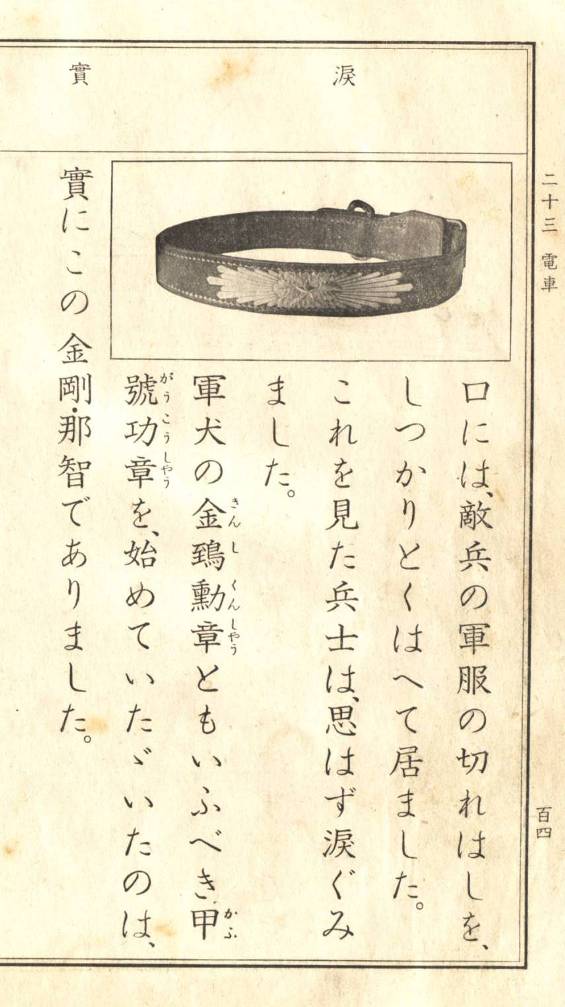 二十三 電車
百四
涙
實
口には、敵兵の軍服の切れはしを、
しつかりとくはへて居ました。
これを見た兵士は、思はず涙ぐみ
ました。
軍犬の金鵄勳章ともいふべき甲
きんしくんしやう
かふ
號功章を、始めていたゞいたのは、
がうこうしやう
實にこの金剛・那智でありました。